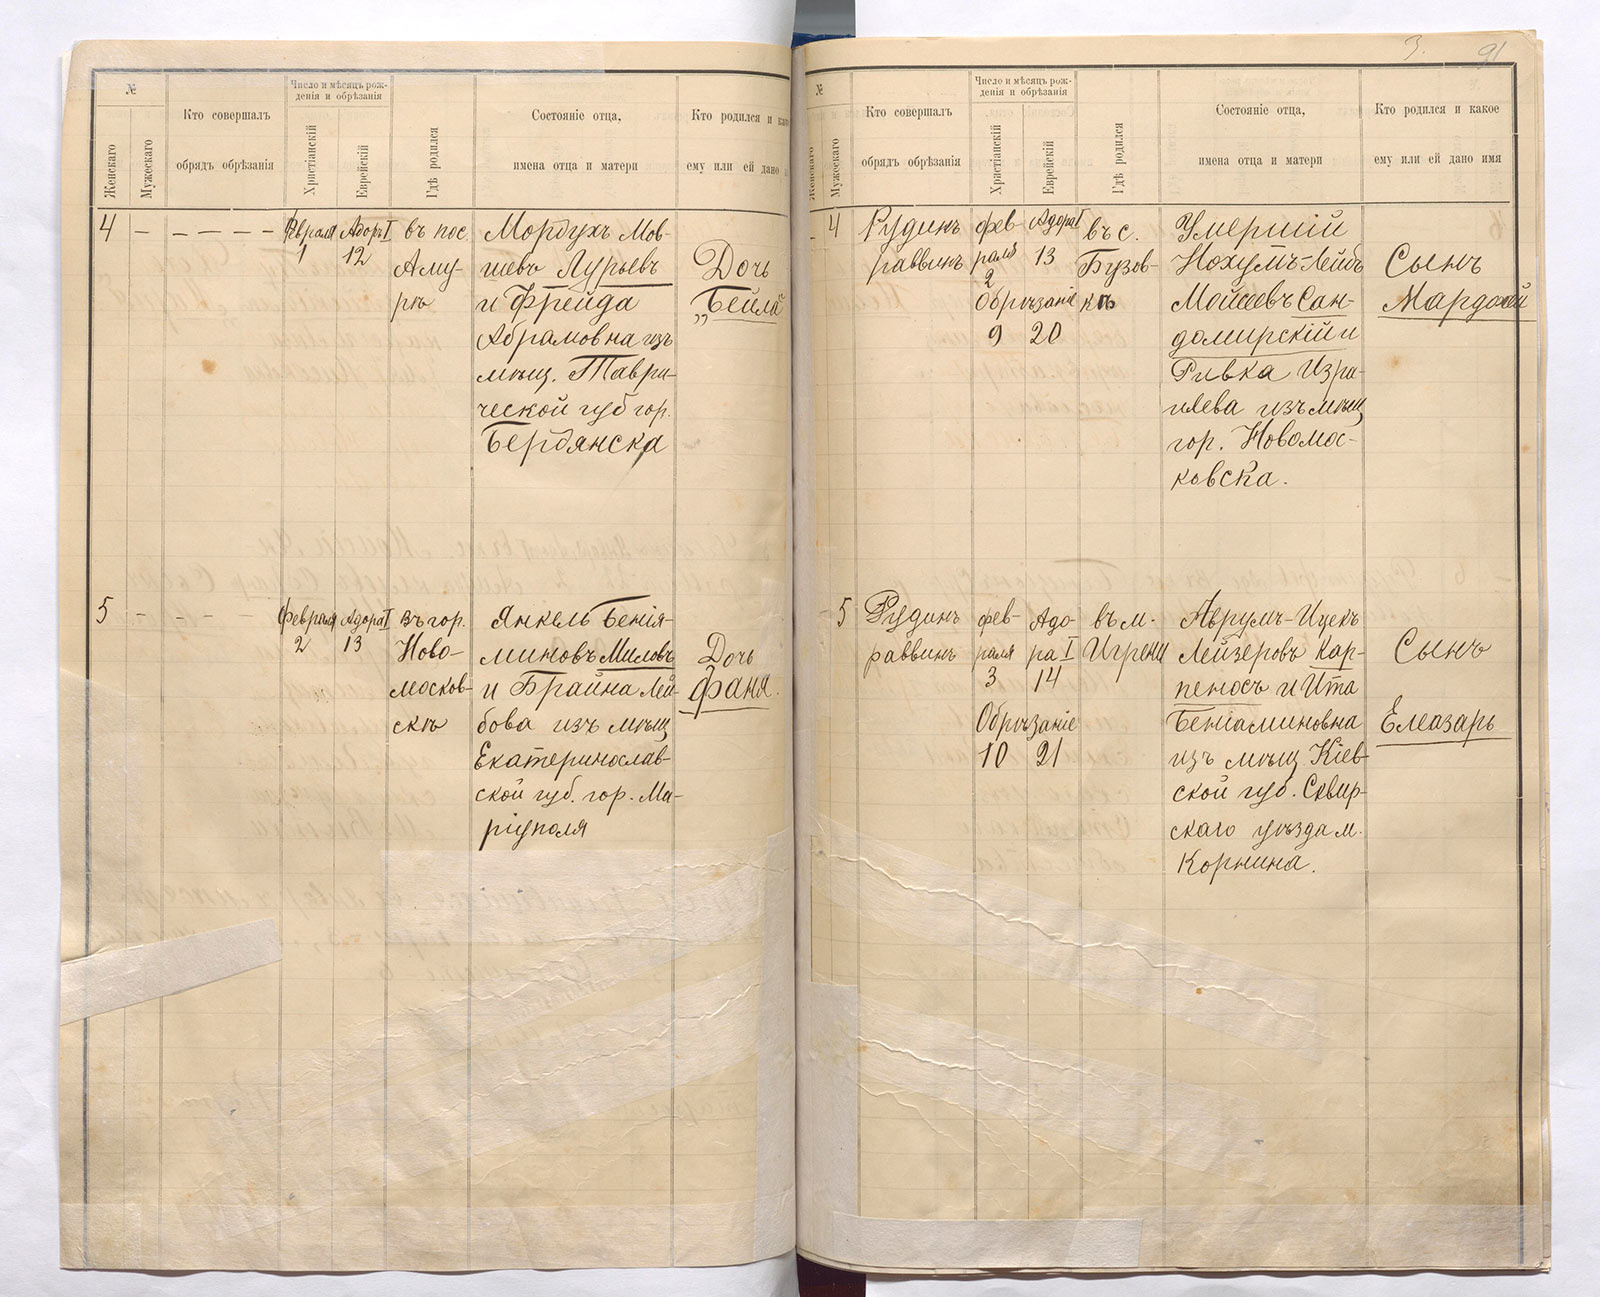 №
Женскаго
Мужескаго
Кто совершалъ
обрядъ обрѣзанія
Число и мѣсяцъ рож-
денія и обрѣзанія
Христіанскій
Еврейскій
Гдѣ родился
Состояніе отца,
имена отца и матери
Кто родился и как
ему или ей дано
4
Февраля
1
Адоръ I
12
въ пос.
Аму-
рѣ
Мордухъ Мов-
шевъ Лурьевъ
и Фрейда
Абрамовна изъ
мѣщ. Таври-
ческой губ гор.
Бердянска
Дочь
„Бейла“
5
Февраля
2
Адора I
13
въ гор.
Ново-
москов-
скѣ
Янкель Бенія-
миновъ Миловъ
и Брайна Лей-
бова изъ мѣщ
Екатеринослав-
ской губ. гор. Ма-
ріуполя
Дочь
Фаня.
3.
91
№
Женскаго
Мужескаго
Кто совершалъ
обрядъ обрѣзанія
Число и мѣсяцъ рож-
денія и обрѣзанія
Христіанскій
Еврейскій
Гдѣ родился
Состояніе отца,
имена отца и матери
Кто родился и какое
ему или ей дано имя
4
Рудинъ
раввинъ
фев
раля
2
Адора I
13
Обрѣзаніе
9 20
въ с.
Бузов-
кѣ
Умершій
Нохумъ-Лейбъ
Мойшевъ Сан-
домирскій и
Ривка Изра-
илева изъ мѣщ
гор. Новомос-
ковска.
Сынъ
Мардохей
5
Рудинъ
раввинъ
фев-
раля
3
Адо-
ра I
14
Обрѣзаніе
10 21
въ м.
Игрени
Аврумъ-Ицекъ
Лейзеровъ Кар-
пеносъ и Ита
Беніаминовна
изъ мѣщ. Кіев-
ской губ. Сквир-
скаго уѣзда м.
Корнина.
Сынъ
Елеазаръ